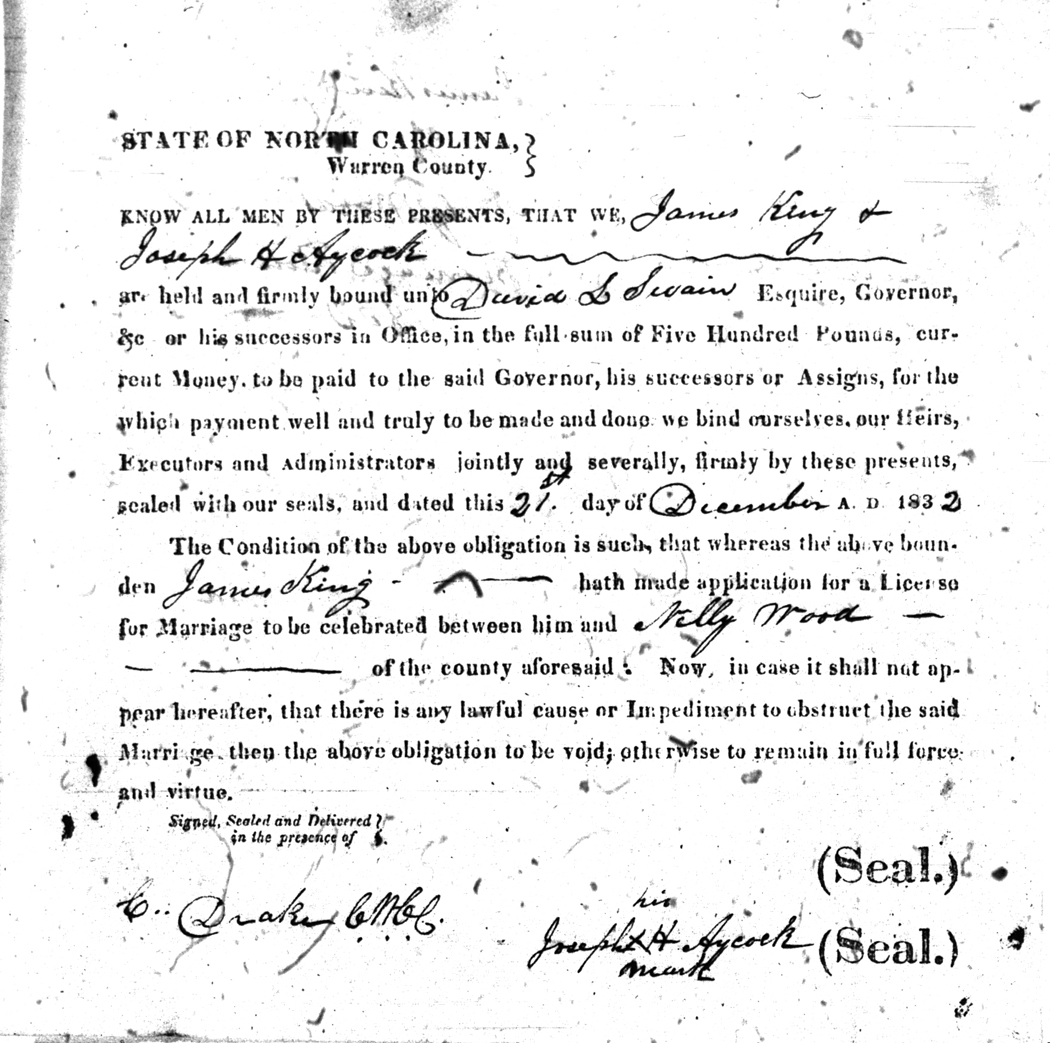 STATE OF NORTH CAROLINA,
Warren County.
KNOW ALL MEN BY THESE PRESENTS, THAT WE, James King &
Joseph H Aycock
are held and firmly bound unto David L Swain Esquire, Governor,
&c or his successors in Office, in the full sum of Five Hundred Pounds, cur-
rent Money, to be paid to the said Governor, his successors or Assigns, for the
which payment well and truly to be made and done we bind ourselves, our Heirs,
Executors and Administrators jointly and severally, firmly by these presents,
sealed with our seals, and dated this 21st. day of December A. D. 1832
The Condition of the above obligation is such, that whereas the above boun-
den James King hath made application for a License
for Marriage to be celebrated between him and Nelly Wood
of the county aforesaid: Now, in case it shall not ap-
pear hereafter, that there is any lawful cause or Impediment to obstruct the said
Marriage, then the above obligation to be void; otherwise to remain in full force
and virtue.
Signed, Sealed and Delivered
in the presence of
(Seal.)
C. Drake CWCC.
his
Joseph X H Aycock (Seal.)
mark